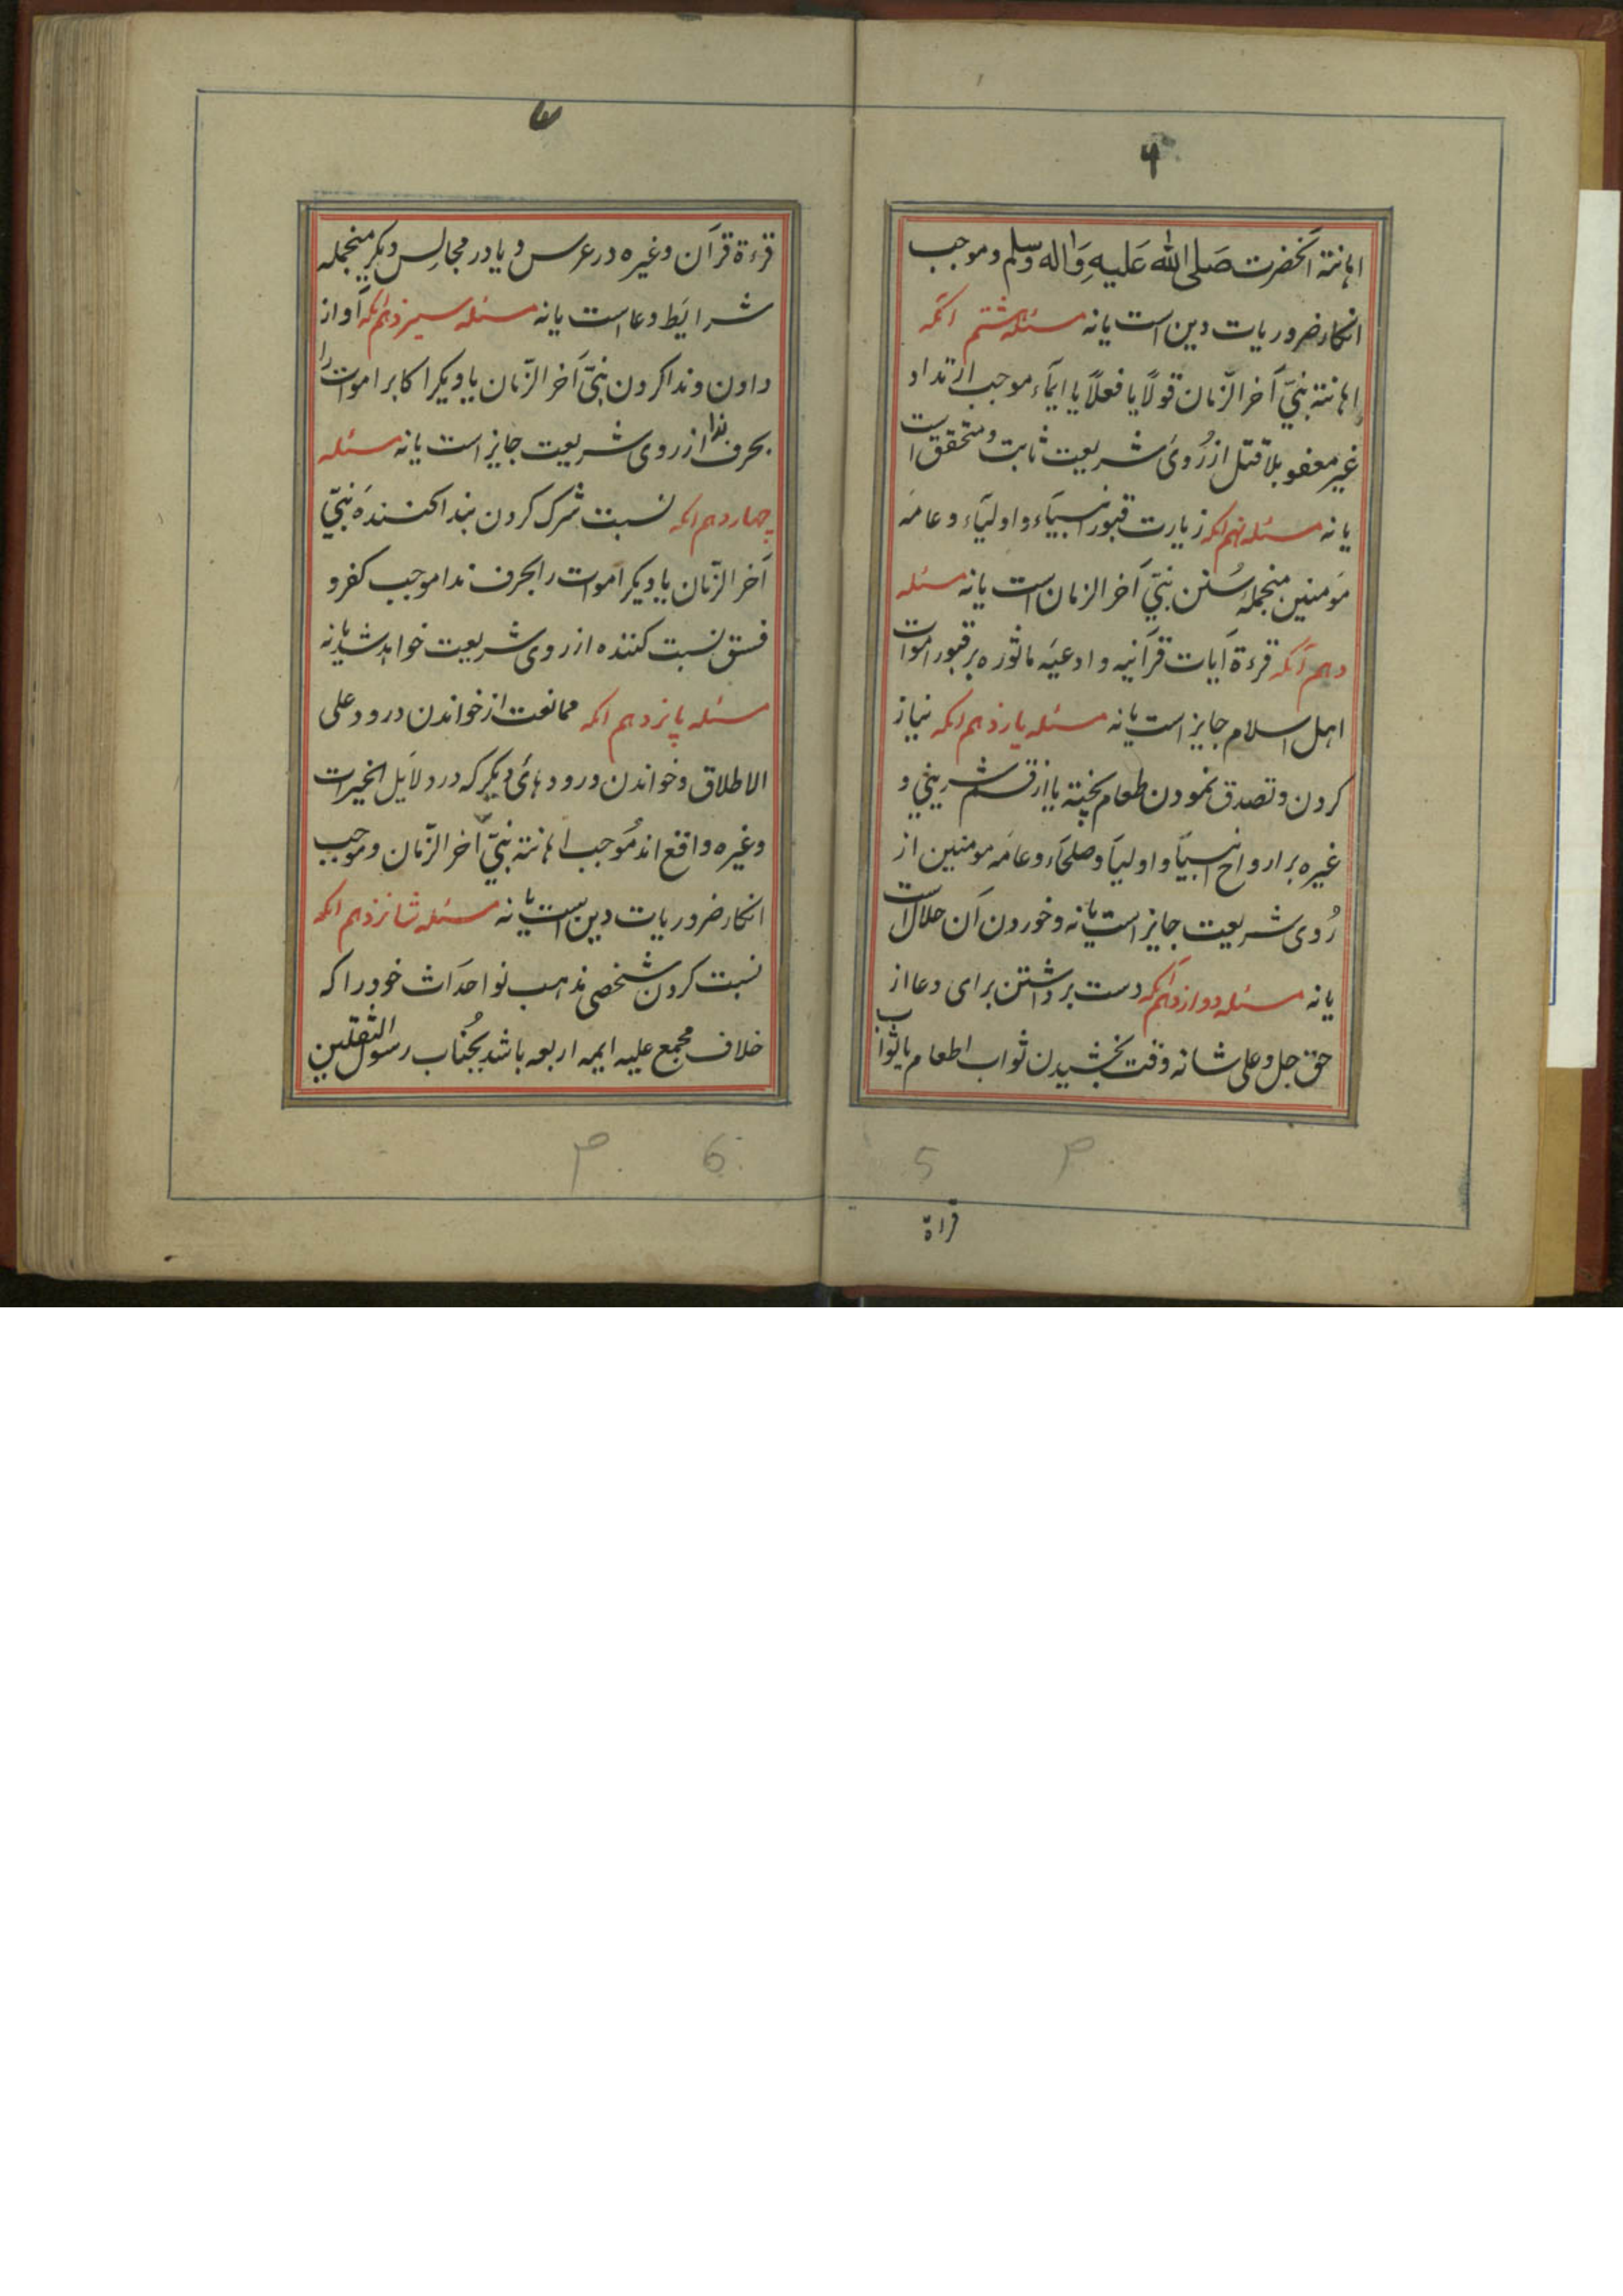 ۴
اهانتة آنحضرت صَلی الله عَلیهِ وَاله وسلم و موجب
انکار ضروریات دین است یا نه مسئله هشتم آنکه
اهانتة نبیّ آخر الزّمان قولًا یا فعلًا یا ایمآء موجب ارتداد
غیر معفو بلا قتل از رُوی شریعت ثابت و متحقق است
یا نه مسئله نهم انکه زیارت قبور انبیآء و اولیآء و عامه
مومنین منجملهٔ سُنن نبیّ آخر الزمان است یا نه مسئله
دهم آنکه قرءة آیات قرآنیه و ادعیَه ماثوره بر قبور اموات
اهل اسلام جایز است یا نه مسئله یازدهم انکه نیاز
کردن و تصدق نمودن طعام پخته یا از قسم شرینی و
غیره بر ارواح انبیآ و اولیآ و صلحآء و عامه مومنین از
رُوی شریعت جایز است یا نه و خوردن آن حلال است
یا نه مسئله دوازدهم آنکه دست برداشتن برای دعا از
حق جل و علی شانه وقت بخشیدن ثواب اطعام یا ثواب
5 م
قراة
۷
قرءة قرآن و غیره در عرس و یا در مجالِس دیکر منجمله
شرایَط دعا است یا نه مسئله سیزدهم آنکه آواز
دادن و ندا کردن نبیّ آخر الزّمان یا دیکر اکابر اموات را
بحرف ندا از روی شریعت جایز است یا نه مسئله
چهاردهم انکه نسبت شرک کردن بندا کنندهٔ نبیّ
آخر الزّمان یا دیکر اموات را بحرف ندا موجب کفر و
فسق نسبت کننده از روی شریعت خواهد شد یا نه
مسئله پانزدهم انکه ممانعت از خواندن درود علی
الاطلاق و خواندن درودهائ دیکر که در دلایَل الخیرات
و غیره واقع اند مُوجب اهانتة نبیّ آخر الزّمان و موجب
انکار ضروریات دین است یا نه مسئله شانزدهم انکه
نسبت کردن شخصی مذهب نو احداث خود را که
خلاف مجمع علیه ایمه اربعه باشد بجُناب رسول الثقلین
م 6